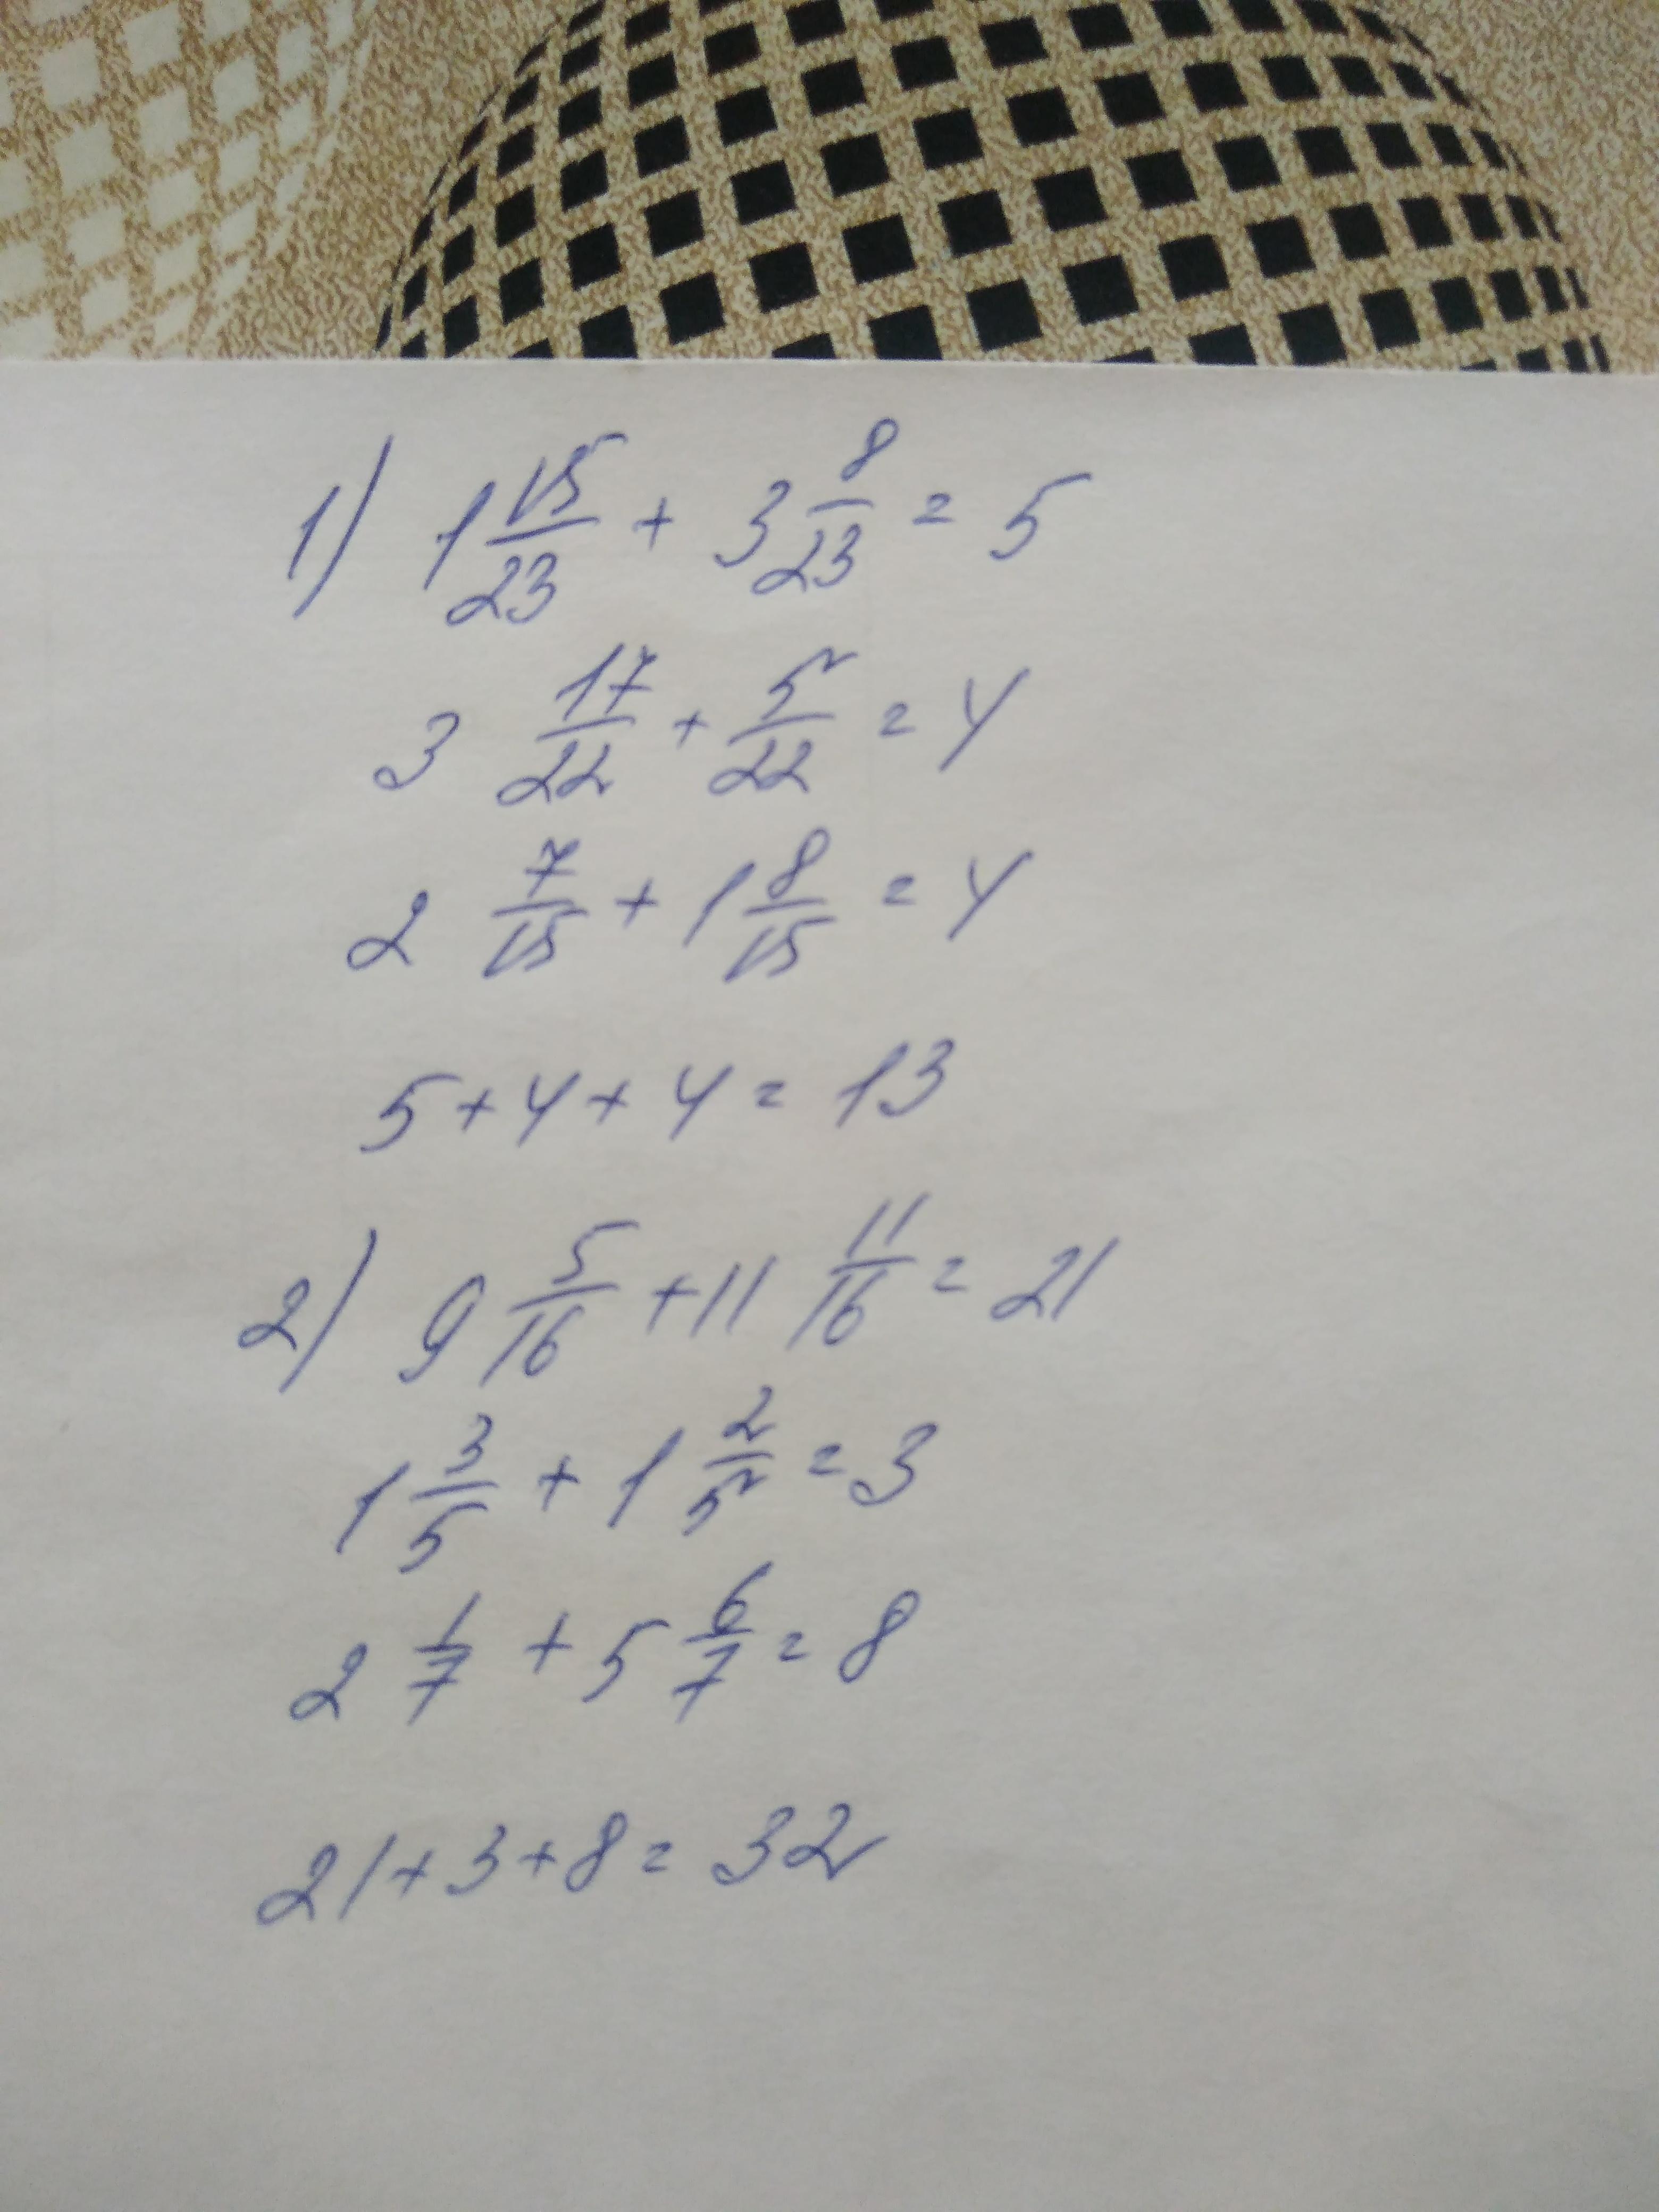 1) 1 15/23 + 3 8/23 = 5
3 17/22 + 5/22 = 4
2 7/15 + 1 8/15 = 4
5 + 4 + 4 = 13
2) 9 5/16 + 11 11/16 = 21
1 3/5 + 1 2/5 = 3
2 1/7 + 5 6/7 = 8
21 + 3 + 8 = 32